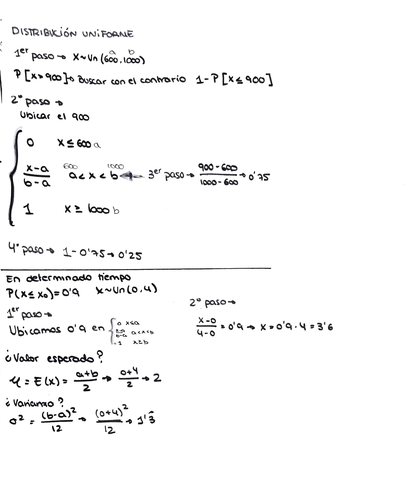 DISTRIBUCIÓN UNIFORME
1er paso → X~Un(600,1000) a b
P[x>900] → Buscar con el contrario 1-P[x≤900]
2º paso →
Ubicar el 900
0 x≤600 a
x-a/b-a 600 1000 a<x<b ← 3er paso → 900-600/1000-600 → 0'75
1 x≥1000 b
4º paso → 1-0'75 → 0'25
En determinado tiempo
P(x≤x₀)=0'9 x~Un(0,4)
1er paso →
Ubicamos 0'9 en { 0 x≤a
x-a/b-a a<x<b
1 x≥b
2º paso →
x-0/4-0 = 0'9 → x = 0'9·4 = 3'6
¿Valor esperado?
μ = E(x) = a+b/2 → 0+4/2 → 2
¿Varianza?
σ² = (b-a)²/12 → (0+4)²/12 → 1'3̂